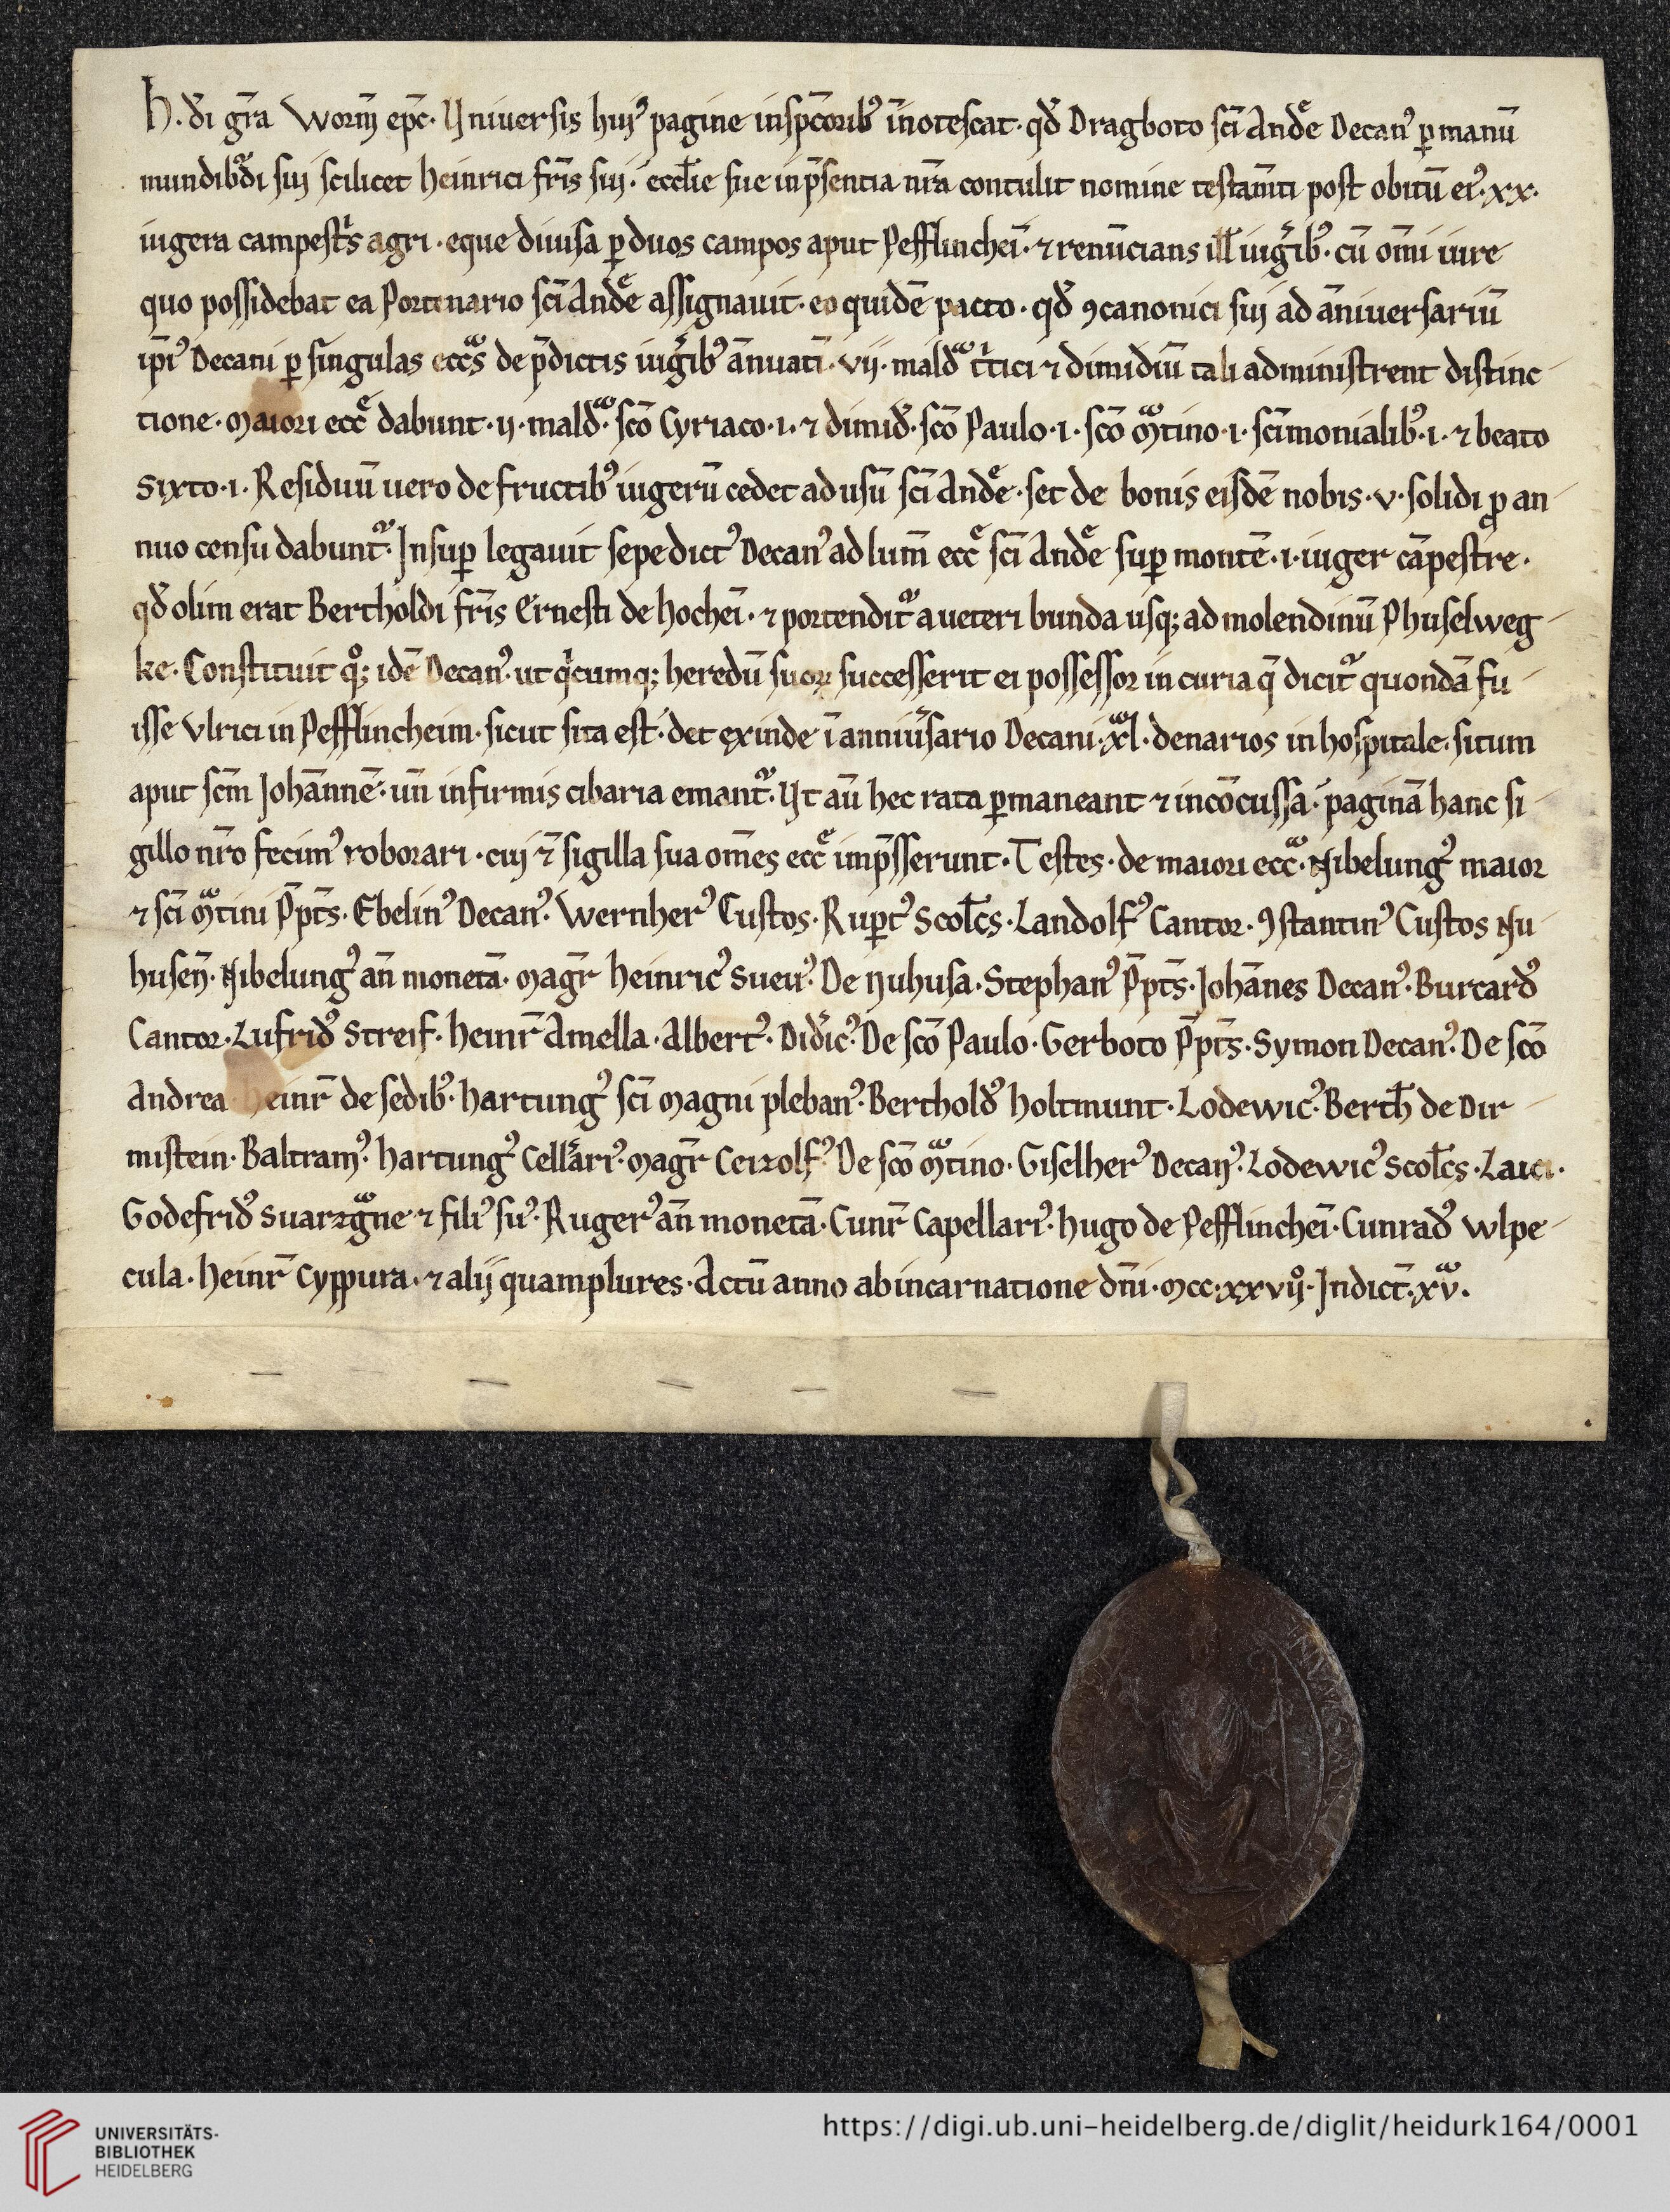 H. di gr̄a Worm̄ ep̄c. Vniuersis huiꝰ pagine insp̄coribꝰ īnotescat. qđ Dragboto sc̄i Andͤe Decanꝰ ꝑ manū
mundibͣdi sui scilicet heinrici fr̄is sui. eccl̄ie sue in p̄sentia nr̄a contulit nomine testam̄ti post obitū eiꝰ. xx.
iugera campestͥs agri. eque diuisa ꝑ duos campos aput Pefflincheī. ⁊ renūcians ill̄ iuḡibꝰ. cū om̄i iure
quo possidebat ea Portenario sc̄i Andͤe assignauit. eo quidē pacto. qđ ꝯcanonici sui ad āniuersariū
ip̄iꝰ Decani ꝑ singulas eccͣs de p̄dictis iuḡibꝰ ānuatī. vii. maldͣ tͥtici ⁊ dimidiū tali administrent distinc
tione. Maiori eccͤ dabunt. ii. maldͣ. sc̄o Cyriaco. i. ⁊ dimid̄. sc̄o Paulo. i. sc̄o Mͣtino. i. sc̄imonialibꝰ. i. ⁊ beato
Sixto. i. Residuū uero de fructibꝰ iugerū cedet ad usū sc̄i Andͤe. set de bonis eisdē nobis. v. solidi ꝓ an
nuo censu dabuntᷣ. Insuꝑ legauit sepedictꝰ Decanꝰ ad lum̄ eccͤ sc̄i Andͤe suꝑ montē. i. iuger cāpestre.
qđ olim erat Bertholdi fr̄is Ernesti de hocheī. ⁊ portenditᷣ a ueteri bunda usq; ad molendinū Phuselweg
ke. Constituit qͦ; idē Decanꝰ. ut qͥcumq; heredū suoꝝ successerit ei possessor in curia q̄ dicitᷣ quondā fu
isse Vlrici in Pefflincheim. sicut sita est. det exinde ī anniu͛sario Decani. xͣl. denarios in hospitale. situm
aput sc̄m Johānnē. un̄ infirmis cibaria emantᷣ. Vt aū hec rata ꝑmaneant ⁊ incōcussa. paginā hanc si
gillo nr̄o fecimꝰ roborari. cui ⁊̄ sigilla sua om̄es eccͤ imp̄sserunt. Testes. de maiori eccͣ. Nibelungꝰ maior
⁊ sc̄i Mͣtini P̄pt̄s. Ebelinꝰ Decanꝰ. Wernherꝰ Custos. Ruꝑtꝰ Scol̄cs. Landolfꝰ Cantor. ꝯstantinꝰ Custos Nu
husen̄. Nibelungꝰ an̄ monetā. Magr̄ heinricꝰ Sueuꝰ. De Nuhusa. Stephanꝰ P̄pt̄s. Johānes Decanꝰ. Burcardꝰ
Cantor. Lufridꝰ Streif. heinr̄ Amella. Albertꝰ. Did͛icꝰ. De sc̄o Paulo. Gerboto P̄pt̄s. Symon Decanꝰ. De sc̄o
Andrea heinr̄ de sedibꝰ. hartungꝰ sc̄i Magni plebanꝰ. Bertholdꝰ holtmunt. Lodewicꝰ. Berth̄ de Dir
mistein. Baltramꝰ. hartungꝰ Cell͛ariꝰ. Magr̄ Ceizolfꝰ. De sc̄o Mͣtino. Giselherꝰ Decanꝰ. Lodewicꝰ Scol̄cs. Laici.
Godefridꝰ Suarzgͣne ⁊ filiꝰ suꝰ. Rugerꝰ an̄ monetā. Cunr̄ Capellariꝰ. hugo de Pefflincheī. Cunradꝰ Wlpe
cula. heinr̄ Cyppura. ⁊ alii quamplures. Actū anno ab incarnatione dn̄i. Mcc. xxviiͦ. Indict̄. xͣv.
UNIVERSITÄTS-
BIBLIOTHEK
HEIDELBERG
https://digi.ub.uni-heidelberg.de/diglit/heidurk164/0001